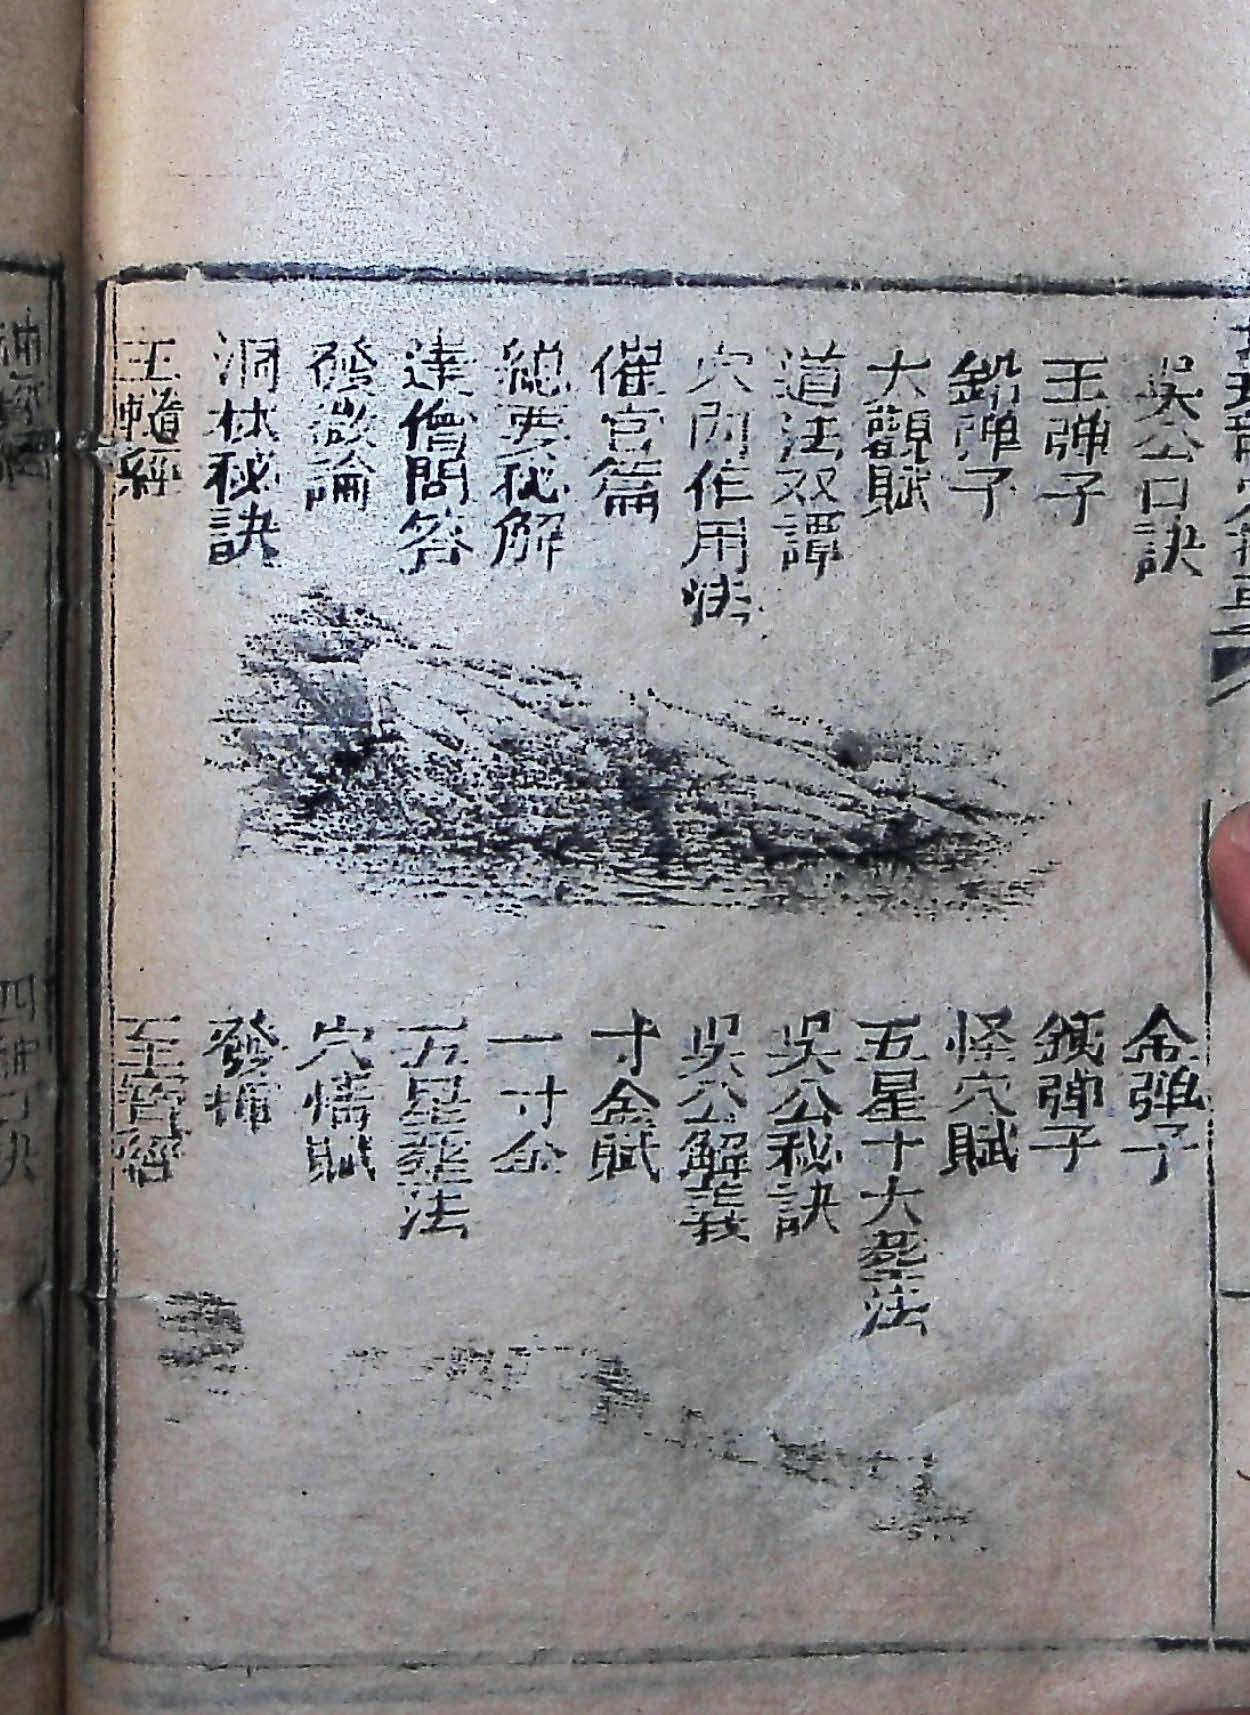 吳公口訣
金彈子
玉彈子
鉄彈子
鉛彈子
怪穴賦
大觀賦
五星十大葬法
道法双譚
吳公秘訣
穴間作用法
吳公解義
催官篇
寸金賦
総要秘解
一寸金
達僧問答
五星葬法
發微論
穴情賦
洞林秘訣
發揮